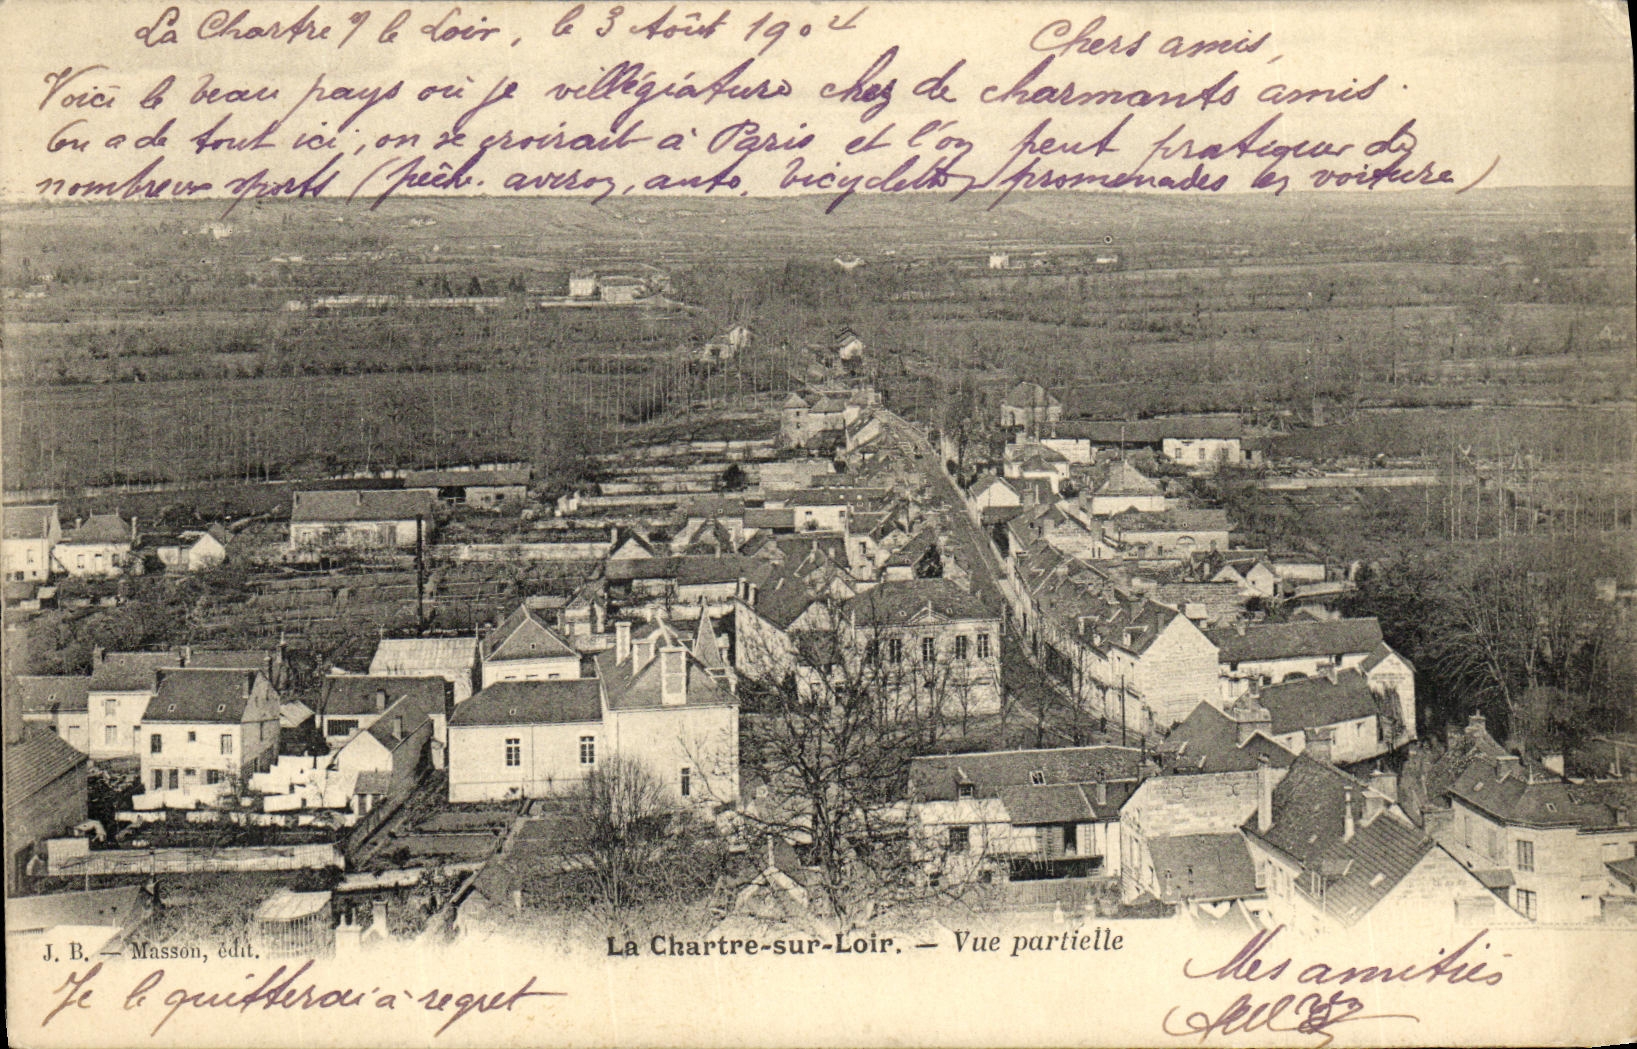 La Chartre s/ le Loir, le 3 Août 1904
Chers amis,
Voici le beau pays où je villégiature chez de charmants amis.
On a de tout ici, on se croirait à Paris et l'on peut pratiquer de
nombreux sports (pêche, aviron, auto, bicyclette, promenades en voiture)
J. B. — Masson, édit.
La Chartre-sur-Loir. — Vue partielle
Je le quitterai à regret
Mes amitiés